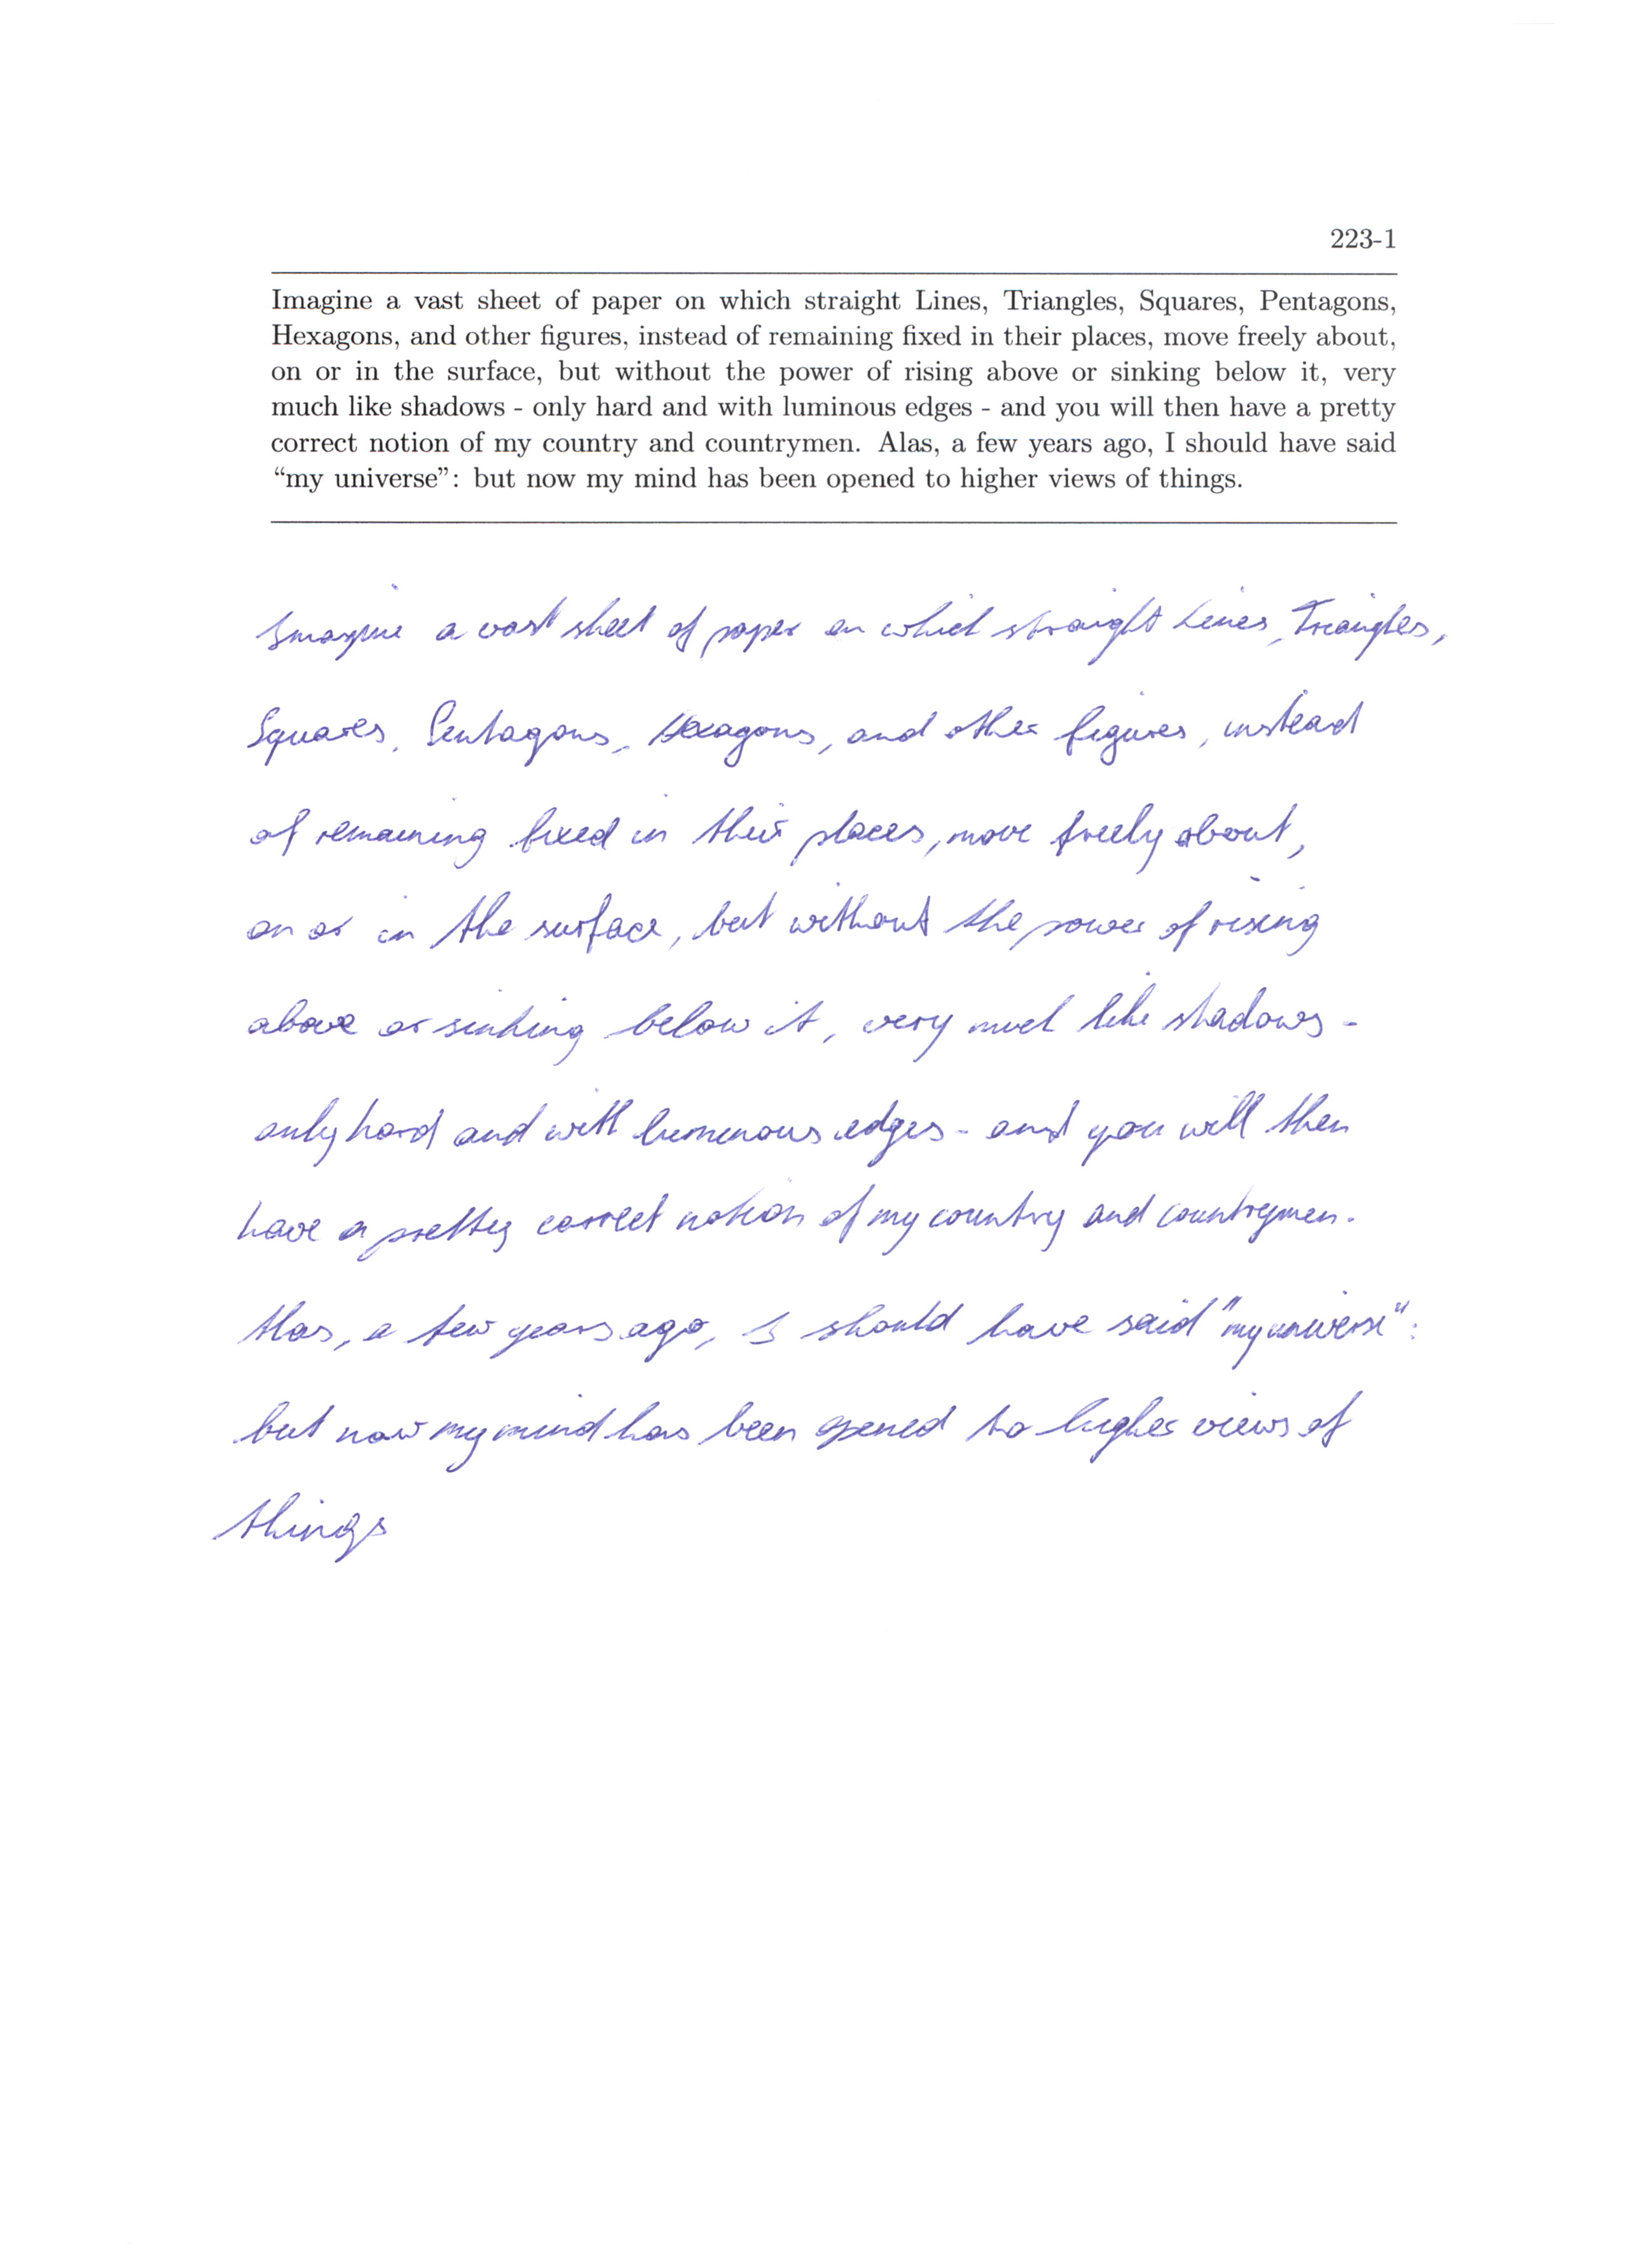 223-1
Imagine a vast sheet of paper on which straight Lines, Triangles, Squares, Pentagons,
Hexagons, and other figures, instead of remaining fixed in their places, move freely about,
on or in the surface, but without the power of rising above or sinking below it, very
much like shadows - only hard and with luminous edges - and you will then have a pretty
correct notion of my country and countrymen. Alas, a few years ago, I should have said
“my universe”: but now my mind has been opened to higher views of things.
Imagine a vast sheet of paper on which straight Lines, Triangles,
Squares, Pentagons, Hexagons, and other figures, instead
of remaining fixed in their places, move freely about,
on or in the surface, but without the power of rising
above or sinking below it, very much like shadows -
only hard and with luminous edges - and you will then
have a pretty correct notion of my country and countrymen.
Alas, a few years ago, I should have said "my universe":
but now my mind has been opened to higher views of
things